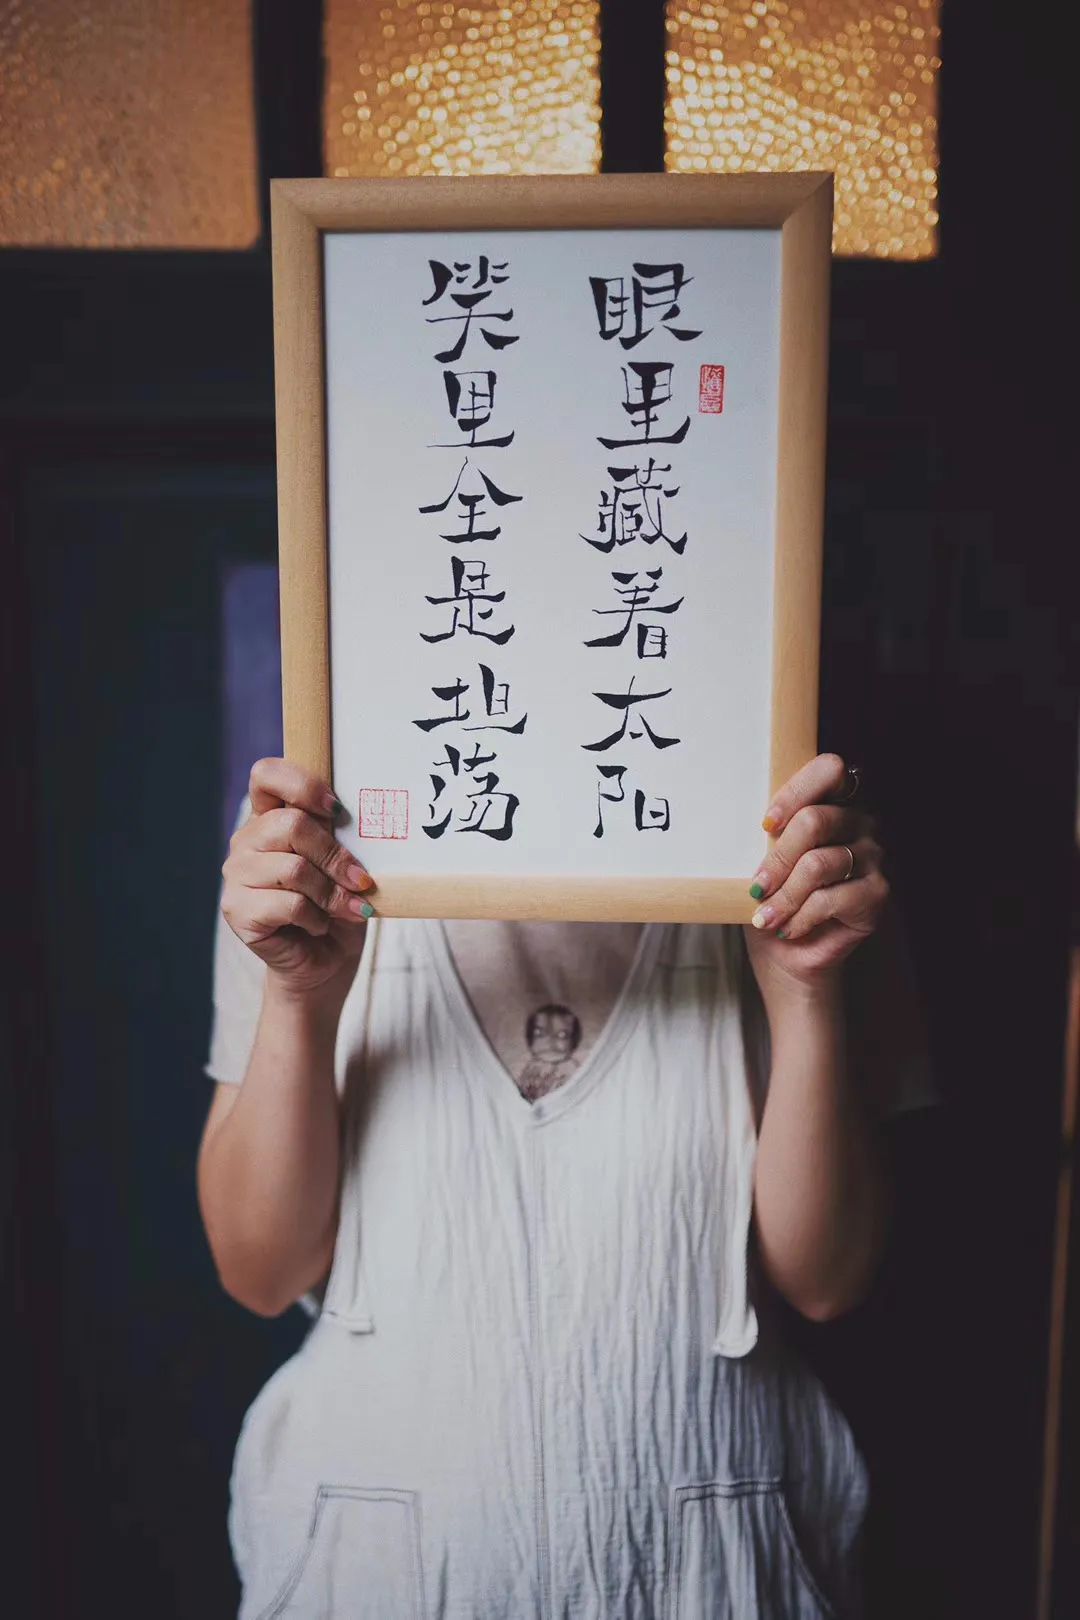 眼里藏着太阳
笑里全是坦荡